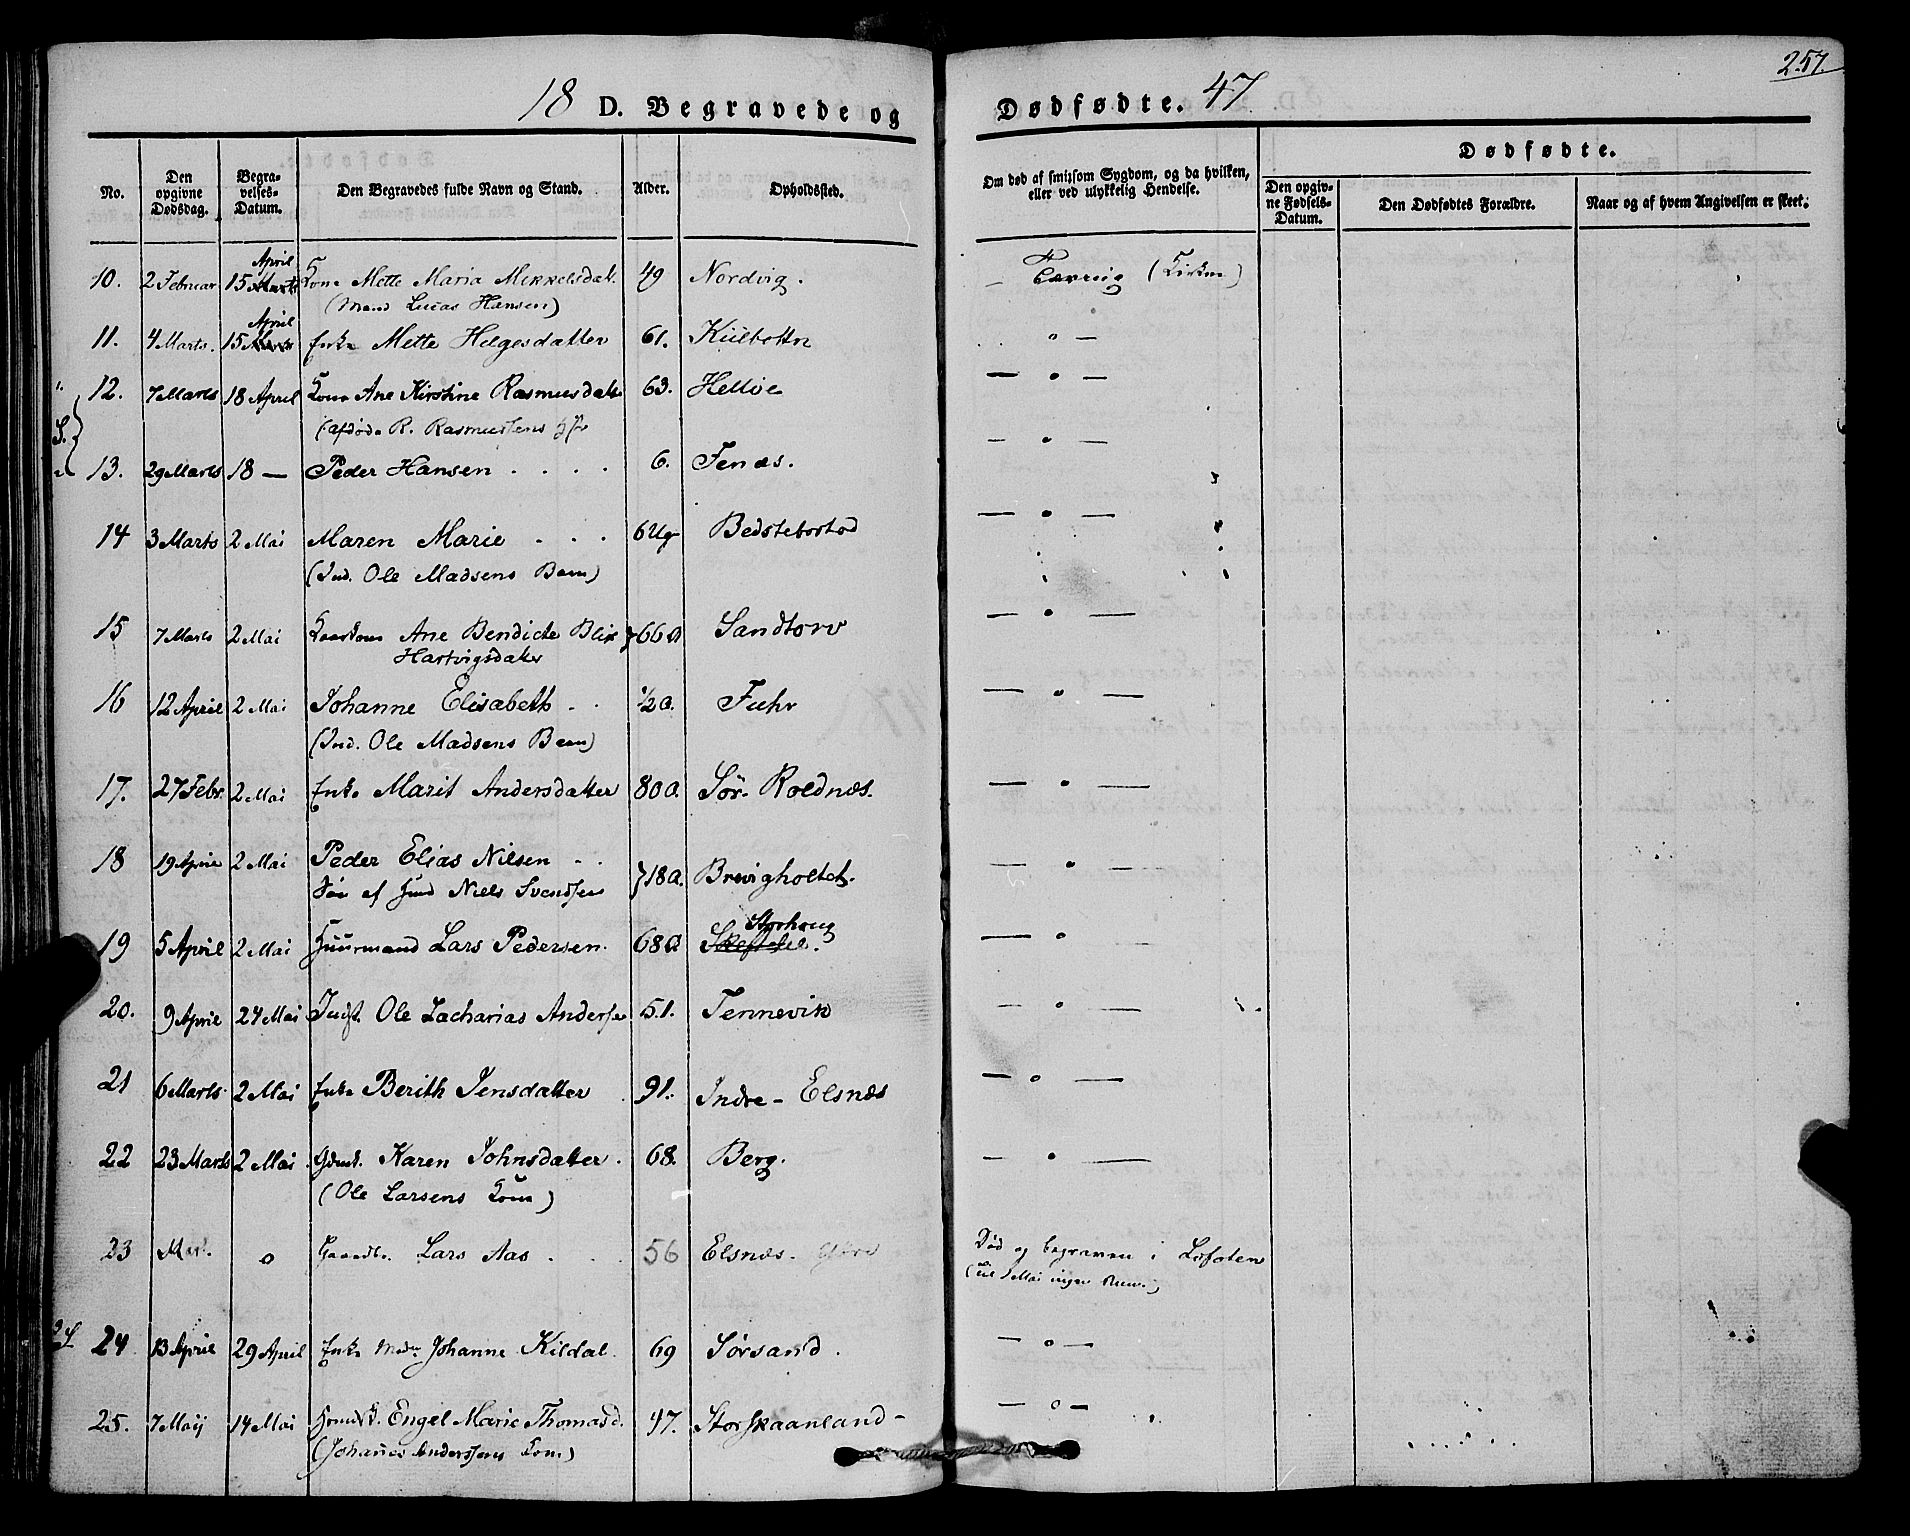 257.
18 D. Begravede og Dødfødte. 47
No.
Den opgivne Dødsdag.
Begravelses-Datum.
Den Begravedes fulde Navn og Stand.
Alder.
Opholdssted.
Om død af smitsom Sygdom, og da hvilken, eller ved ulykkelig Hendelse.
Dødfødte.
Den opgivne Fødsels-Datum.
Den Dødfødtes Forældre.
Naar og af hvem Angivelsen er skeet.
April
10. 2 Februar 15 Marts Kone Mette Maria Mikkelsdat. 49 Nordvig. —
(Mand Lucas Hansen)
April
11. 4 Marts. 15 Marts Enke Mette Helgesdatter 61. Kiilbottn " —
12. 7 Marts 18 April Kone Ane Kirstine Rasmusdatter 63. Helløe — " —
(afdøde R. Rasmussens
S.
13. 29 Marts 18 — Peder Hansen . . . . 6. Fenæs. — " —
14 3 Marts 2 Mai Maren Marie . . . 6 Ug Bedstebostad — " —
(Ind. Ole Madsens Barn)
15 7 Marts 2 Mai Ane Bendicte Blix 66 A Sandtorv — " —
Hartvigsdatter
16 12 April 2 Mai Johanne Elisabeth . . 1/2 a. — " —
(Ind. Ole Madsens Barn)
17. 27 Febr. 2 Mai Enke Marit Andersdatter 80 a. Sør-Roldnæs. — " —
18 19 April 2 Mai Peder Elias Nilsen . . 18 a. Brevigholtet. — " —
Søn af Niels Svendsen
Storhoug
19 5 April 2 Mai Huusmand Lars Pedersen. 68 a. — "
20. 9 April 24 Mai Indst. Ole Zacharias Andersen 51. Tennevik — " —
21 6 Marts 2 Mai Enke Berith Jensdatter 91. Indre-Elsnæs — " —
22 23 Marts 2 Mai Karen Johnsdatter. 68. Berg. — " —
(Ole Larsens Kone)
23 Mart. " Lars Aas . . . 56 Elsnæs. Død og begraven i Lofoten
Mai ingen
24 13 April 29 April Enke Mad. Johanne Kildal. 69 Sørsand. — " —
25. 7 Maij 14 Mai Engel Marie Thomasd. 47. Storskaanland — " —
(Johannes Anderssens Kone)